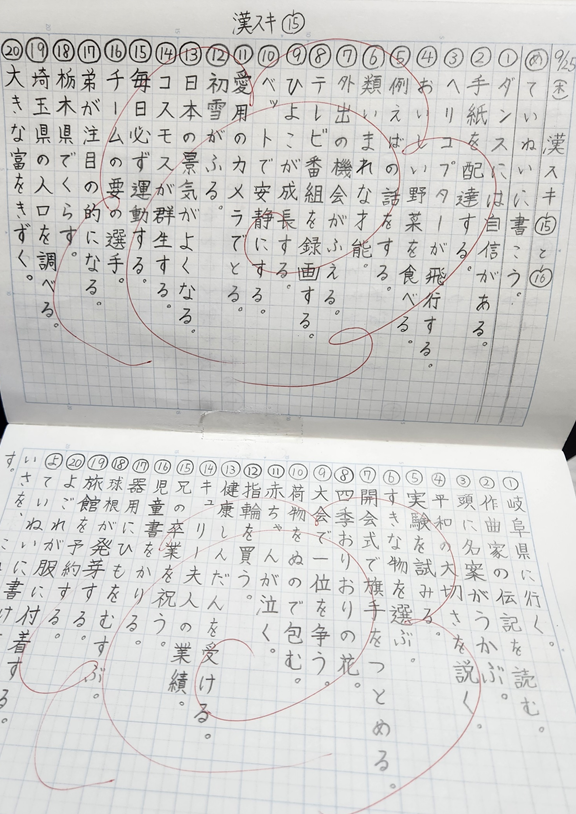 漢スキ⑮
9/25(木) 漢スキ⑮と⑯
め ていねいに書こう。
① ダンスには自信がある。
② 手紙を配達する。
③ ヘリコプターが飛行する。
④ おいしい野菜を食べる。
⑤ 例えばの話をする。
⑥ 類いまれな才能。
⑦ 外出の機会がふえる。
⑧ テレビ番組を録画する。
⑨ ひよこが成長する。
⑩ ベットで安静にする。
⑪ 愛用のカメラでとる。
⑫ 初雪がふる。
⑬ 日本の景気がよくなる。
⑭ コスモスが群生する。
⑮ 毎日必ず運動する。
⑯ チームの要の選手。
⑰ 弟が注目の的になる。
⑱ 栃木県でくらす。
⑲ 埼玉県の人口を調べる。
⑳ 大きな富をきずく。
① 岐阜県に行く。
② 作曲家の伝記を読む。
③ 頭に名案がうかぶ。
④ 平和の大切さを説く。
⑤ 実験を試みる。
⑥ すきな物を選ぶ。
⑦ 開会式で旗手をつとめる。
⑧ 四季おりおりの花。
⑨ 大会で一位を争う。
⑩ 荷物をぬので包む。
⑪ 赤ちゃんが泣く。
⑫ 指輪を買う。
⑬ 健康しんだんを受ける。
⑭ キュリー夫人の業績。
⑮ 兄の卒業を祝う。
⑯ 児童書をかりる。
⑰ 器用にひもをむすぶ。
⑱ 球根が発芽する。
⑲ 旅館を予約する。
⑳ よごれが服に付着する。
よ ていねいに書け
す。